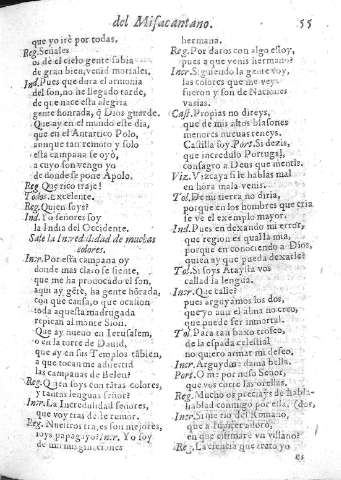 del Misacantano. 55
que yo irè por todas.
Reg. Señales
os dè el cielo gente sabia
de gran bien, venid mortales.
Ind. Pues que dura el armonia
del son, no he llegado tarde,
de que nace esta alegria
gente honrada, q̃ Dios guarde.
Que ay en el mundo este dia,
que en el Antartico Polo,
aunque tan remoto y solo
esta campana se oyò,
a cuyo son vengo yo
de donde se pone Apolo.
Reg. Que rico traje!
Todos. Excelente.
Reg. Quien soys?
Ind. Yo señores soy
la India del Occidente.
Sale la Incredulidad de muchas
colores.
Incr. Por esta campana oy
donde mas claro se siente,
que me ha prouocado el son,
aqui ay gẽte, ha gente hõrada,
con que causa, o que ocasion
toda aquesta madrugada
repican al monte Sion.
Que ay nueuo en Ierusalem,
o en la torre de Dauid,
que ay en sus Templos tãbien,
a que tocan me aduertid
las campanas de Belen?
Reg. Quien soys con tãtas colores,
y tantas lenguas señor?
Incr. La Incredulidad señores,
que voy tras de le rumor.
Reg. Nuestros tra, es son mejores,
soys papagayo? Incr. Yo soy
de mil imaginaciones
hermana.
Reg. Por daros con algo estoy,
pues a que venis hermano?
Incr. Siguiendo la gente voy,
las colores que me veys
fueron y son de Naciones
varias.
Cast. Propias no direys,
que de mis altos blasones
menores nueuas teneys.
Castilla soy. Port. Si dezis,
que incredulo Portugal,
consagro a Deus que mentis.
Viz. Vizcaya si le hablas mal
en hora mala venis.
Tol. De mi tierra no diria,
porque en los hombres que cria
se vè el exemplo mayor.
Ind. Pues en dexando mi error,
que region es qual la mia,
porque en conociendo a Dios,
quien ay que pueda dexarle?
Tol. Si soys Atayba vos
callad la lengua.
Incr. Que calle?
pues arguyamos los dos,
que yo aun el alma no creo,
que puede ser inmortal.
Tol. Para tan baxo trofeo,
de la espada celestial
no quiero armar mi deseo,
Incr. Arguydme: dama bella.
Port. O me por nessa Señor,
que vos corte las orellas.
Reg. Mucho os preciays de habla-
hablad conmigo por ella, (dor,
Incr. Si que rio del Romano,
que a Iupiter adorò,
en que estimarè vn villano?
Reg. La ciencia que trato yo
es